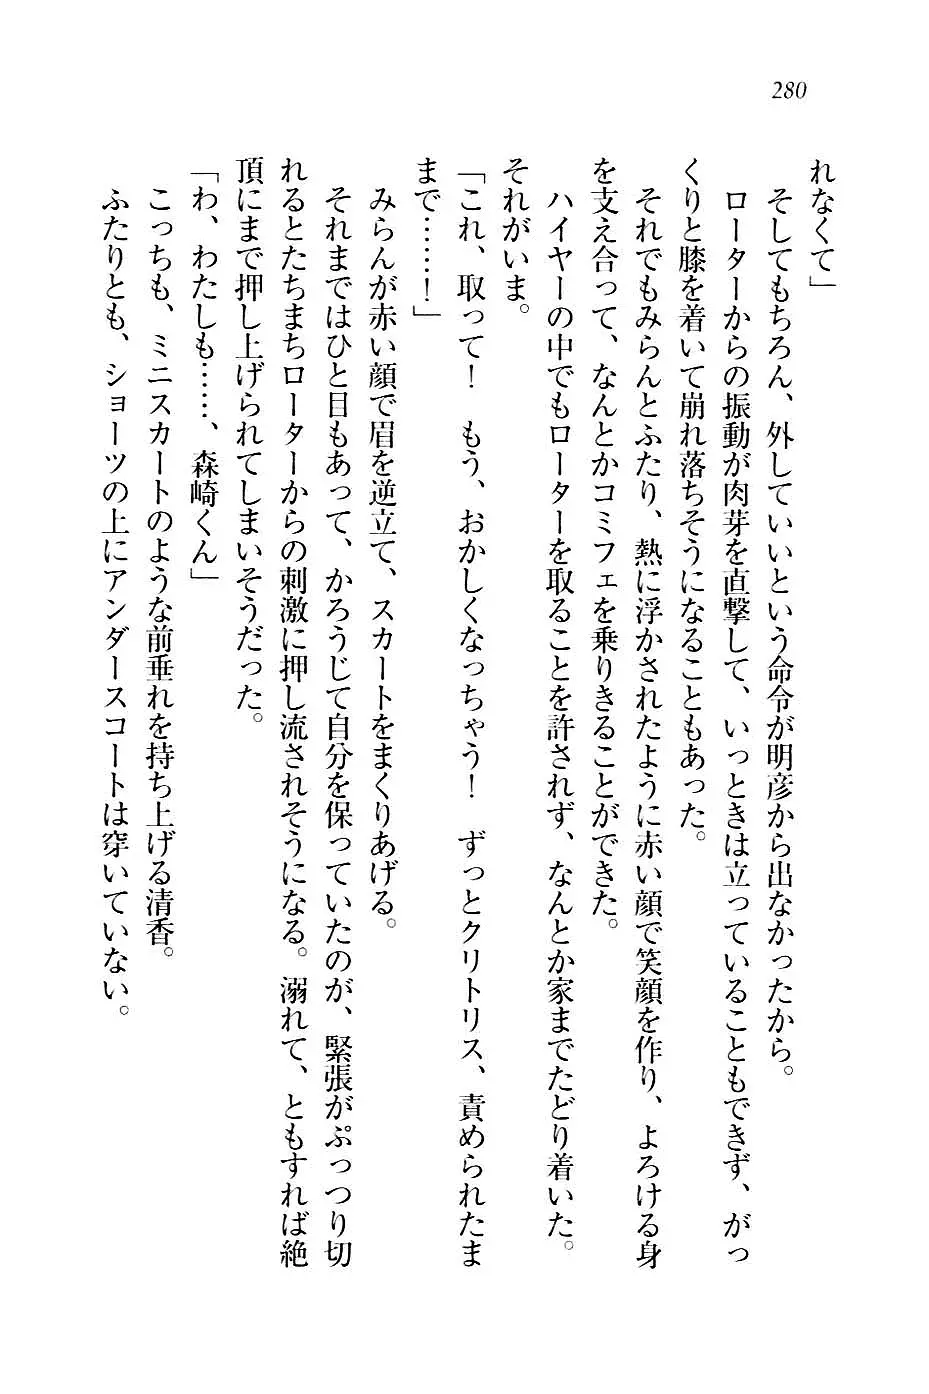 280
れなくて」
そしてもちろん、外していいという命令が明彦から出なかったから。
ローターからの振動が肉芽を直撃して、いっときは立っていることもできず、がっ
くりと膝を着いて崩れ落ちそうになることもあった。
それでもみらんとふたり、熱に浮かされたように赤い顔で笑顔を作り、よろける身
を支え合って、なんとかコミフェを乗りきることができた。
ハイヤーの中でもローターを取ることを許されず、なんとか家までたどり着いた。
それがいま。
「これ、取って！　もう、おかしくなっちゃう！　ずっとクリトリス、責められたま
まで……！」
みらんが赤い顔で眉を逆立て、スカートをまくりあげる。
それまではひと目もあって、かろうじて自分を保っていたのが、緊張がぷっつり切
れるとたちまちローターからの刺激に押し流されそうになる。溺れて、ともすれば絶
頂にまで押し上げられてしまいそうだった。
「わ、わたしも……、森崎くん」
こっちも、ミニスカートのような前垂れを持ち上げる清香。
ふたりとも、ショーツの上にアンダースコートは穿いていない。